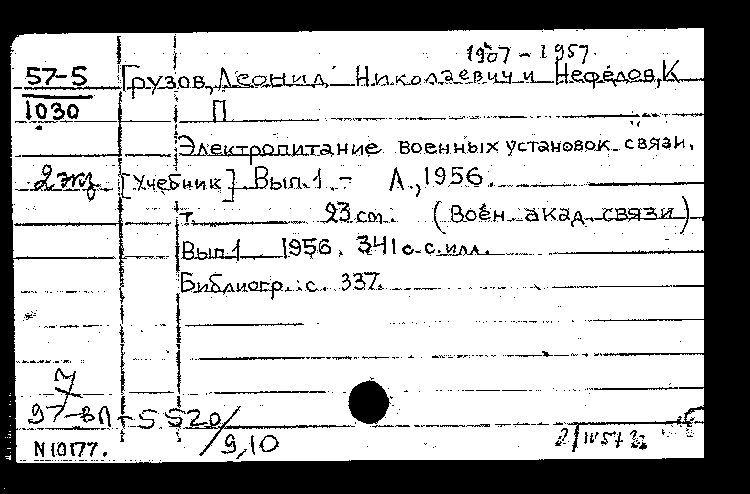 1907-1957.
57-5 Грузов, Леонид Николаевич и Нефёдов, К
1030 П
Электропитание военных установок связи.
2 экз [Учебник] Вып.1 - Л., 1956.
т. 23 cm. (Воен. акад. связи)
Вып.1 1956. 341 с. с илл.
Библиогр.: с. 337.
97-ВЛ-5520/9,10
N 10177. 2/IV 57 г.